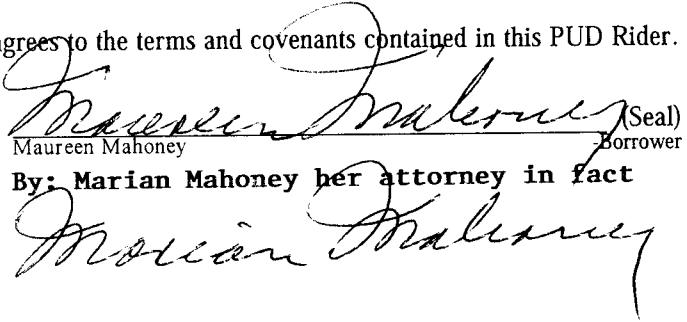 agrees to the terms and covenants contained in this PUD Rider.
Maureen Mahoney (Seal)
Maureen Mahoney -Borrower
By: Marian Mahoney her attorney in fact
Marian Mahoney